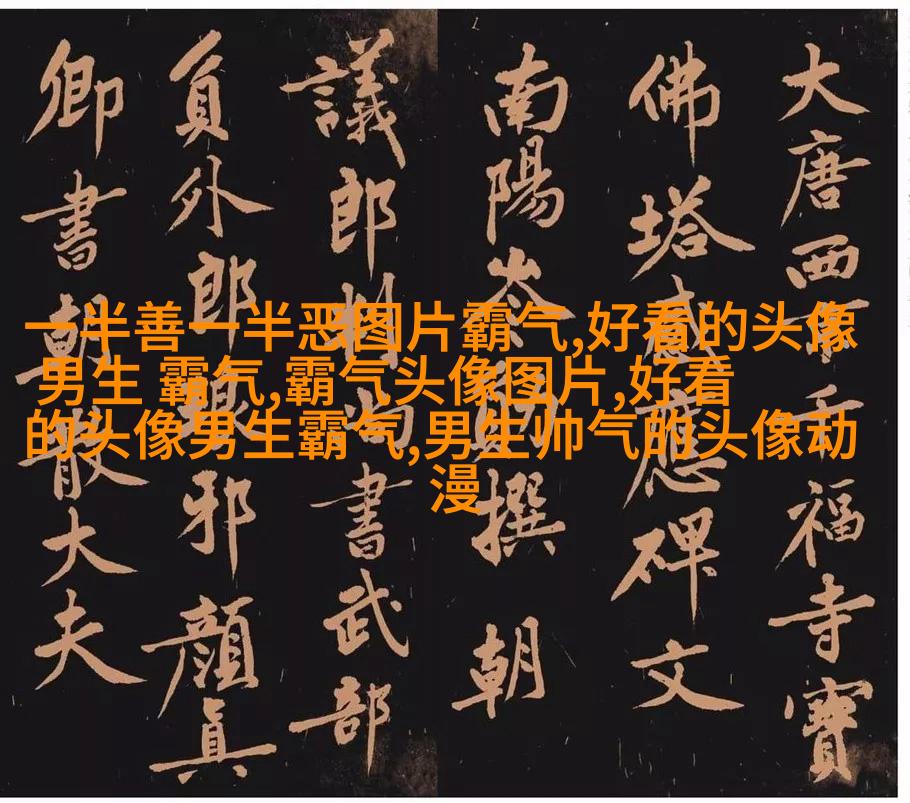 大唐西京千福寺寶
佛塔感應碑文
南陽岑勛撰 朝
議郎判尚書武部
員外郎琅邪顏真
卿書朝散大夫
一半善一半恶图片霸气,好看的头像
男生 霸气,霸气头像图片,好看
的头像男生霸气,男生帅气的头像动
漫